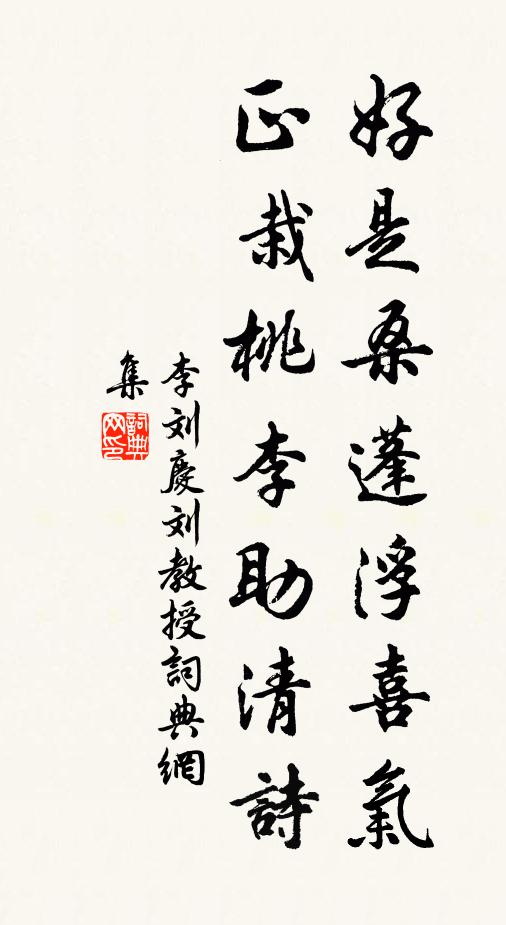 好是桑蓬浮喜氣
正栽桃李助清詩
李刘慶刘教授詞典網
集
詞典網印